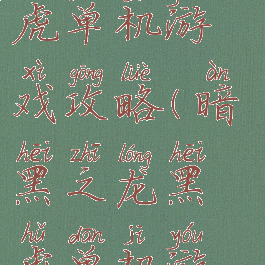 虎单机游
xì gōng lüè àn
戏攻略(暗
hēi zhī lóng hēi
黑之龙黑
hǔ dān jī yóu
虎单机游